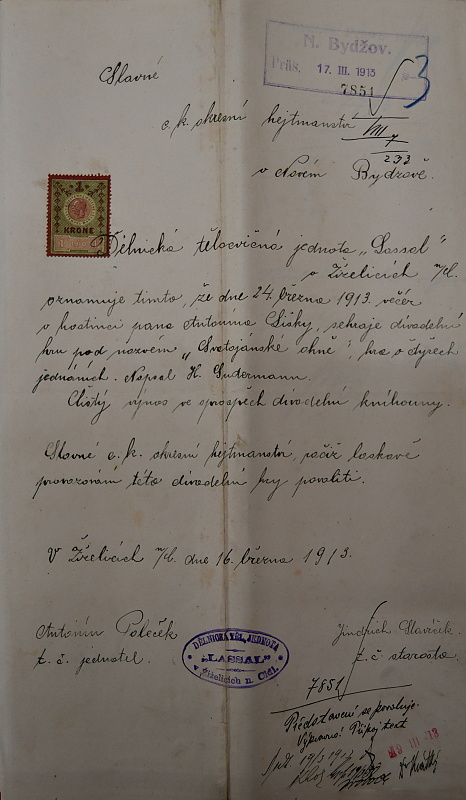 N. Bydžov.
Präs. 17. III. 1913
7851
3
Slavné
c. k. okresní hejtmanství
VIII
7
233
v Novém Bydžově.
1
KRONE
Dělnická tělocvičná jednota „Lassal"
v Žiželicích n/C.
oznamuje tímto, že dne 24. března 1913. večer
v hostinci pana Antonína Lišky, sehraje divadelní
hru pod názvem „Svatojanské ohně", hra o čtyřech
jednáních. Napsal H. Sudermann.
Čistý výnos ve prospěch divadelní knihovny.
Slavné c. k. okresní hejtmanství, račiž laskavě
provozování této divadelní hry povoliti.
V Žiželicích n/C. dne 16. března 1913.
Antonín Poleček
t. č. jednatel.
DĚLNICKÁ TĚL. JEDNOTA
„LASSAL"
v Žiželicích n. Cidl.
Jindřich Slavíček
t. č. starosta
7851
Představení se povoluje.
19/3 1913